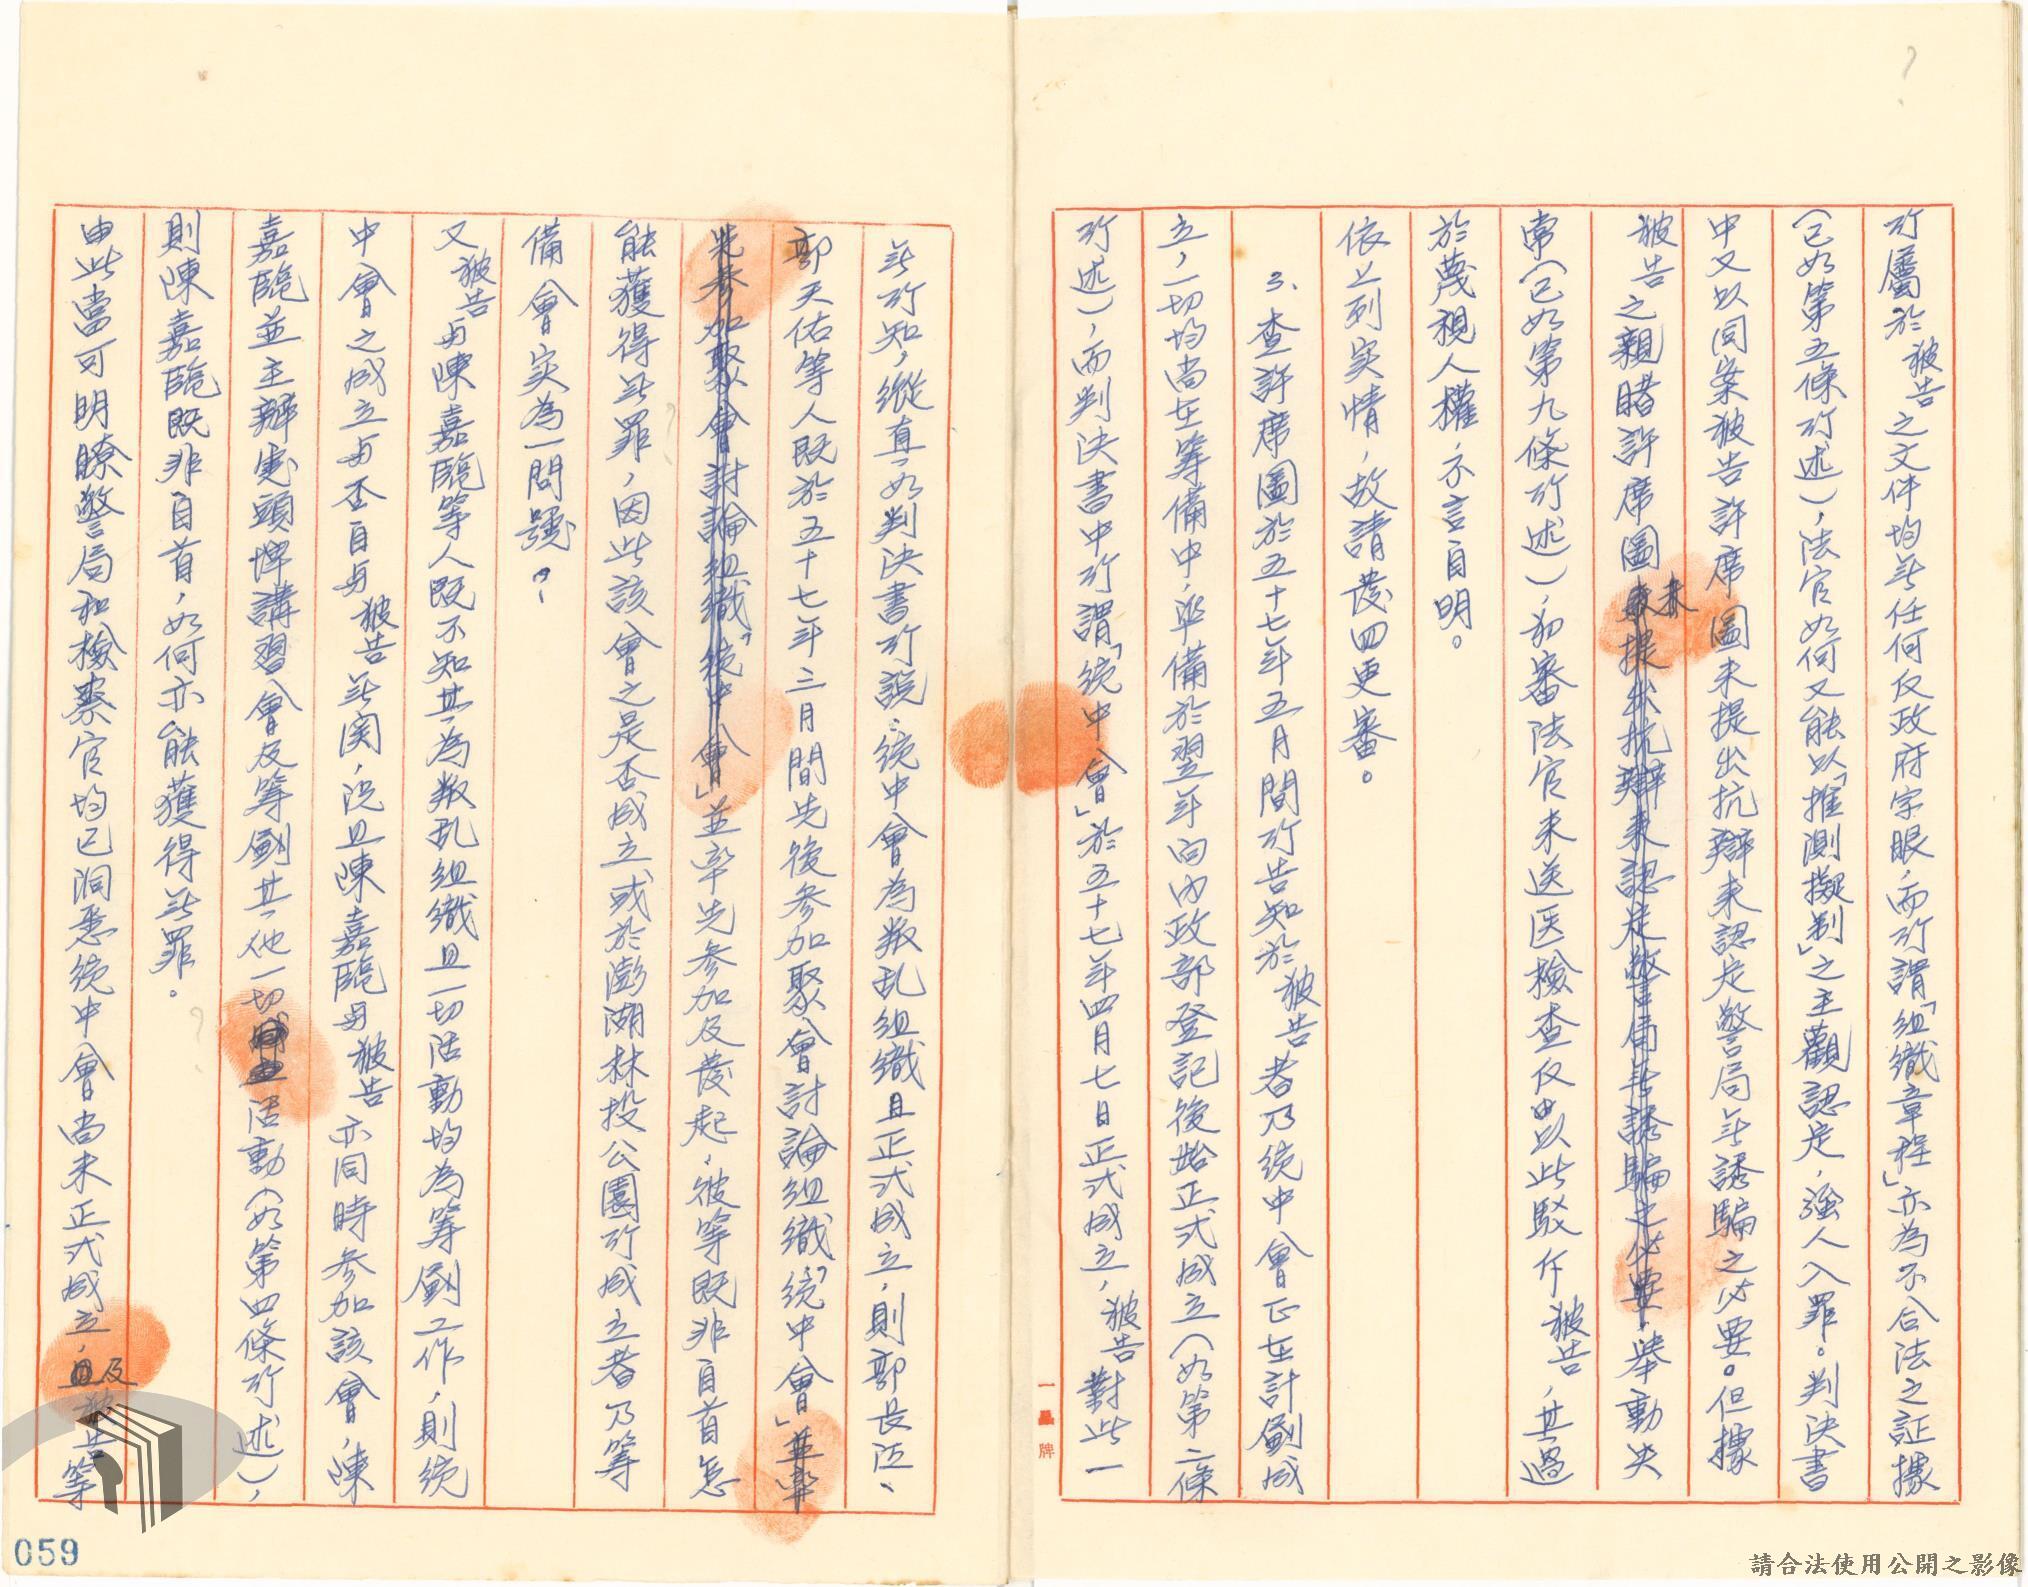 所屬於被告之文件均無任何反政府字眼，而所謂「組織章程」亦為不合法之証據
（已如第五條所述），法官如何又能以「推測擬制」之主觀認定，強人入罪。判決書
中又以同案被告許席圖未提出抗辯未認定警局無誘騙之必要。但據
被告之親睹許席圖未提出抗辯未認定警局無誘騙之必要，舉動失
常（已如第九條所述），初審法官未送医檢查反以此駁斥被告，其過
於蔑視人權，不言自明。
依上列实情，故請發回更審。
3、查許席圖於五十七年五月間所告知於被告者乃統中會正在計劃成
立，一切均尚在籌備中，準備於翌年向內政部登記後始正式成立（如第二條
所述），而判決書中所謂「統中會」於五十七年四月七日正式成立，被告對此一
無所知，縱真如判決書所說：統中會為叛乱組織且正式成立，則郭長江、
郭天佑等人既於五十七年三月間先後參加聚會討論組織「統中會」並率
先參加聚會討論組織「統中會」並率先參加及發起，彼等既非自首怎
能獲得無罪，因此該會之是否成立或於澎湖林投公園所成立者乃籌
備會实為一問題？
又被告與陳嘉臨等人既不知其為叛乱組織且一切活動均為籌劃工作，則統
中會之成立與否自與被告無関，況且陳嘉臨與被告亦同時參加該會，陳
嘉臨並主辦崁頭埤講習會及籌劃其他一切活動（如第四條所述），
則陳嘉臨既非自首，如何亦能獲得無罪。
由此當可明瞭警局和檢察官均已洞悉統中會尚未正式成立，及被告等
一品牌
059
請合法使用公開之影像